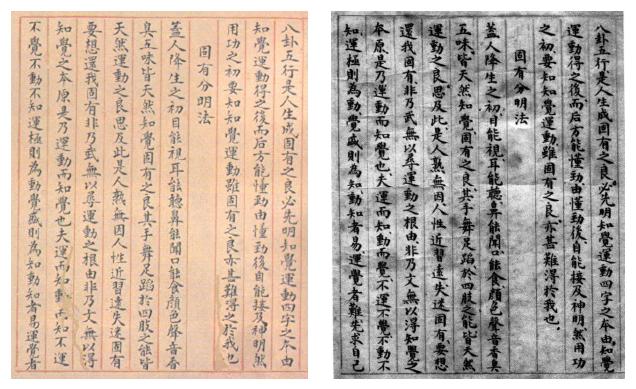 八卦五行是人生成固有之良必先明知覺運動四字之本由
知覺運動得之後而后方能懂勁由懂勁後自能接及神明然
用功之初要知知覺運動雖固有之良亦甚難得之於我也
固有分明法
蓋人降生之初目能視耳能聽鼻能聞口能食顏色聲音香
臭五味皆天然知覺固有之良其手舞足蹈於四肢之能皆
天然運動之良思及此是人熟無因人性近習遠失迷固有
要想還我固有非乃武無以尋運動之根由非乃文無以得
知覺之本原是乃運動而知覺也夫運而知動而知不運
不覺不動不知運極則為動覺盛則為知動知者易運覺者
八卦五行是人生成固有之良必先明知覺運動四字之本由知覺
運動得之後而后方能懂勁由懂勁後自能接及神明然用功
之初要知知覺運動雖固有之良亦甚難得之於我也
固有分明法
蓋人降生之初目能視耳能聽鼻能聞口能食顏色聲音香臭
五味皆天然知覺固有之良其手舞足蹈於四肢之能皆天然
運動之良思及此是人熟無因人性近習遠失迷固有要想
還我固有非乃武無以尋運動之根由非乃文無以得知覺之
本原是乃運動而知覺也夫運而知動而覺不運不覺不動不
知運極則為動覺盛則為知動知者易運覺者難先求自己